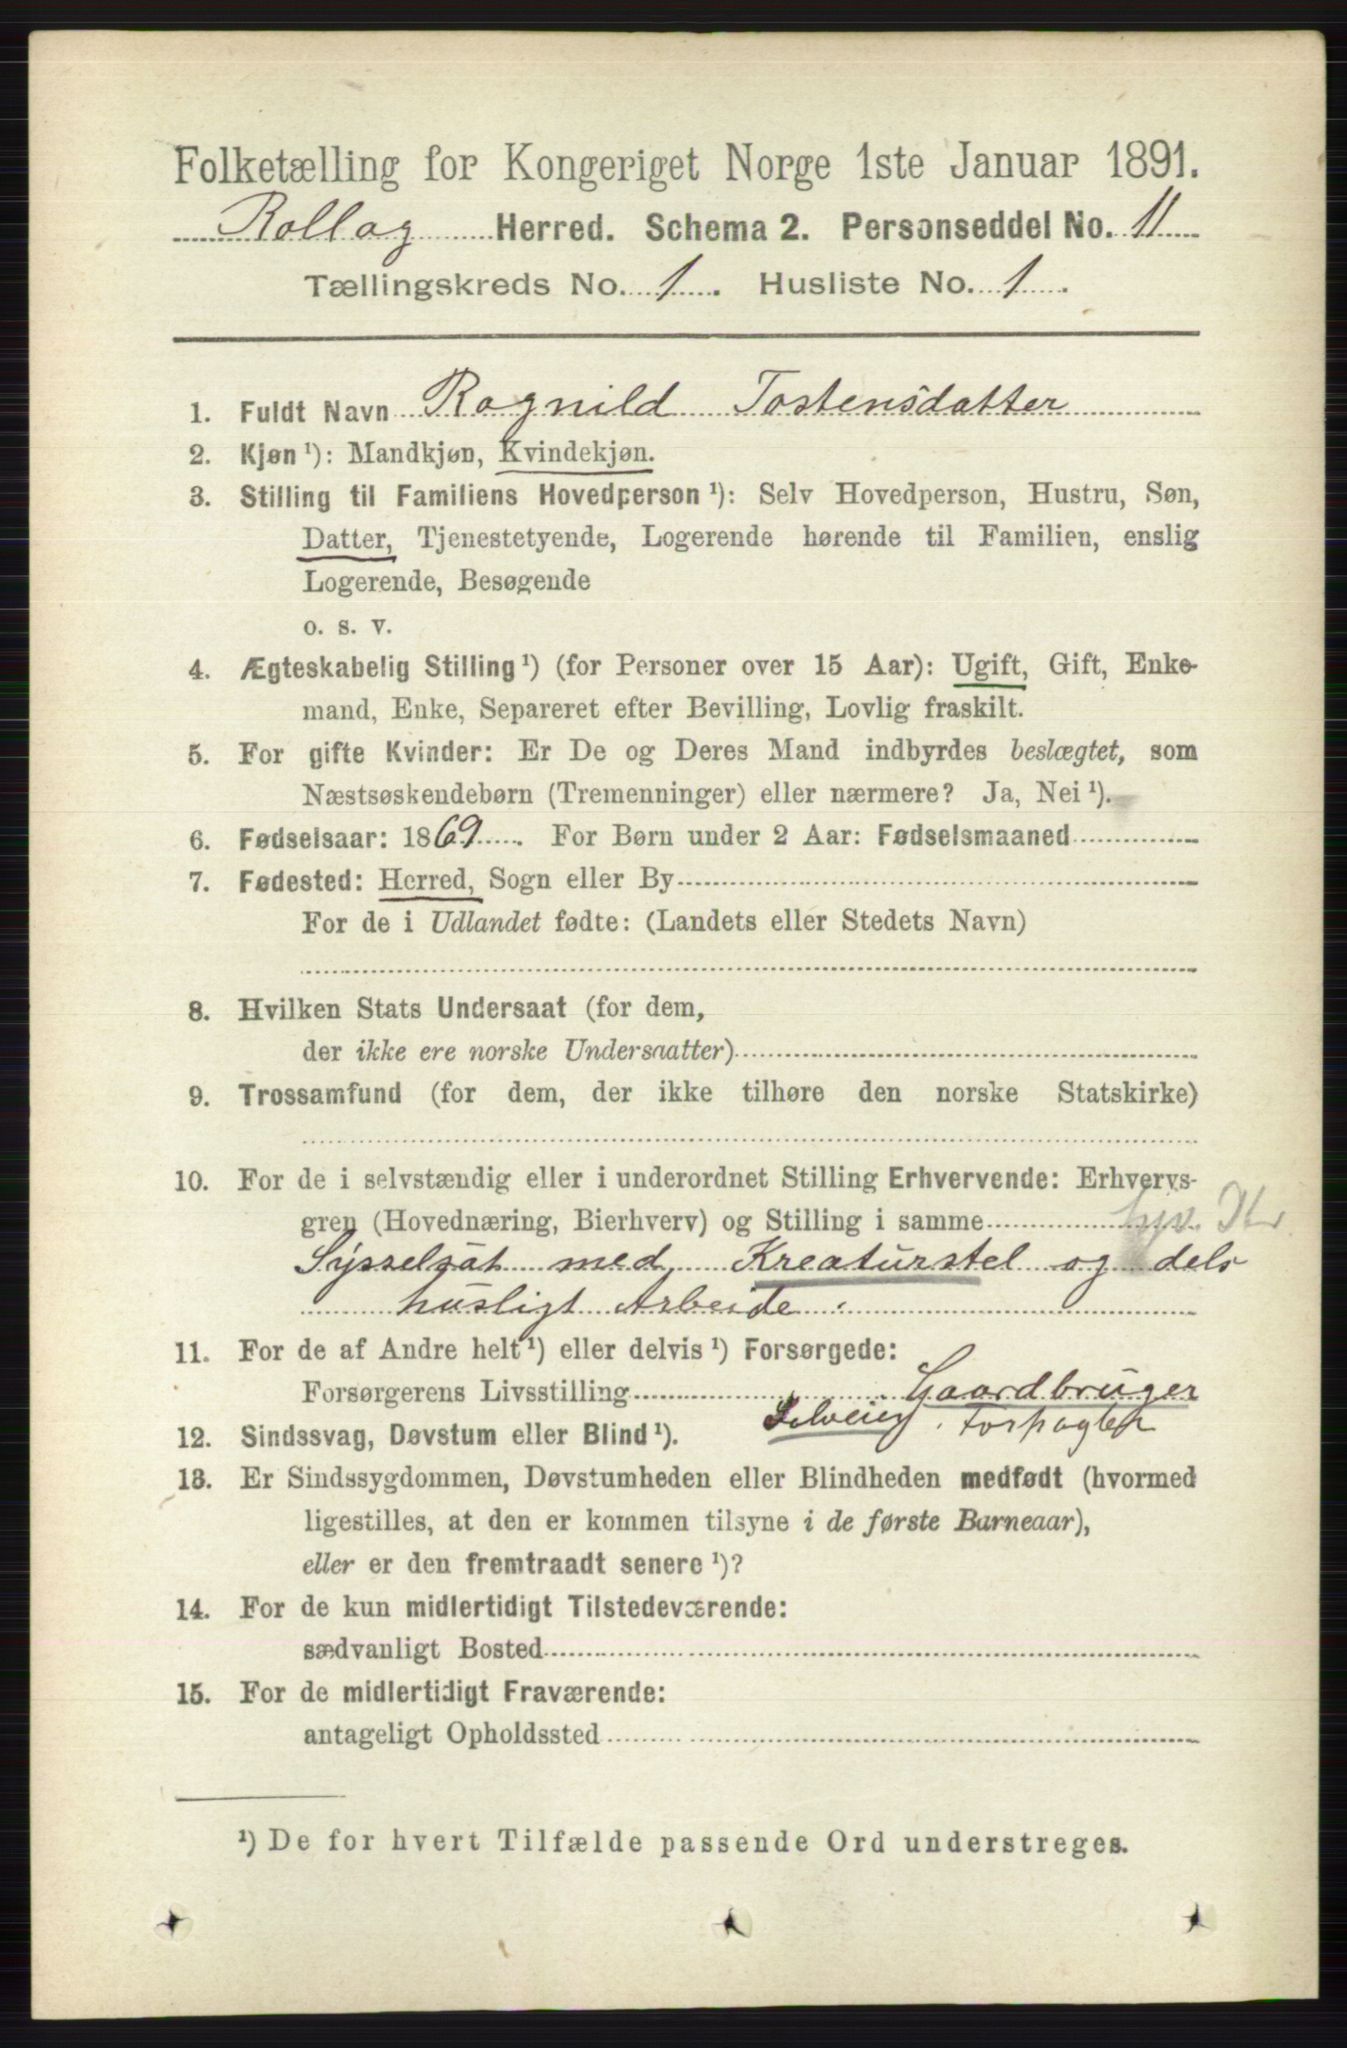 Folketælling for Kongeriget Norge 1ste Januar 1891.
Rollag Herred. Schema 2. Personseddel No. 11
Tællingskreds No. 1. Husliste No. 1.
1. Fuldt Navn Ragnild Tostensdatter
2. Kjøn ¹): Mandkjøn, Kvindekjøn.
3. Stilling til Familiens Hovedperson ¹): Selv Hovedperson, Hustru, Søn,
Datter, Tjenestetyende, Logerende hørende til Familien, enslig
Logerende, Besøgende
o. s. v.
4. Ægteskabelig Stilling ¹) (for Personer over 15 Aar): Ugift, Gift, Enke-
mand, Enke, Separeret efter Bevilling, Lovlig fraskilt.
5. For gifte Kvinder: Er De og Deres Mand indbyrdes beslægtet, som
Næstsøskendebørn (Tremenninger) eller nærmere? Ja, Nei ¹).
6. Fødselsaar: 1869. For Børn under 2 Aar: Fødselsmaaned
7. Fødested: Herred, Sogn eller By
For de i Udlandet fødte: (Landets eller Stedets Navn)
8. Hvilken Stats Undersaat (for dem,
der ikke ere norske Undersaatter)
9. Trossamfund (for dem, der ikke tilhøre den norske Statskirke)
10. For de i selvstændig eller i underordnet Stilling Erhvervende: Erhvervs-
gren (Hovednæring, Bierhverv) og Stilling i samme
Sysselsat med Kreaturstel og dels
husligt Arbeide.
11. For de af Andre helt ¹) eller delvis ¹) Forsørgede:
Forsørgerens Livsstilling Gaardbruger
Selveier. Forpagter
12. Sindssvag, Døvstum eller Blind ¹).
13. Er Sindssygdommen, Døvstumheden eller Blindheden medfødt (hvormed
ligestilles, at den er kommen tilsyne i de første Barneaar),
eller er den fremtraadt senere ¹)?
14. For de kun midlertidigt Tilstedeværende:
sædvanligt Bosted
15. For de midlertidigt Fraværende:
antageligt Opholdssted
¹) De for hvert Tilfælde passende Ord understreges.